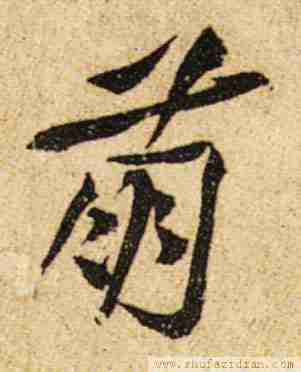 萌
www.shufazidian.com